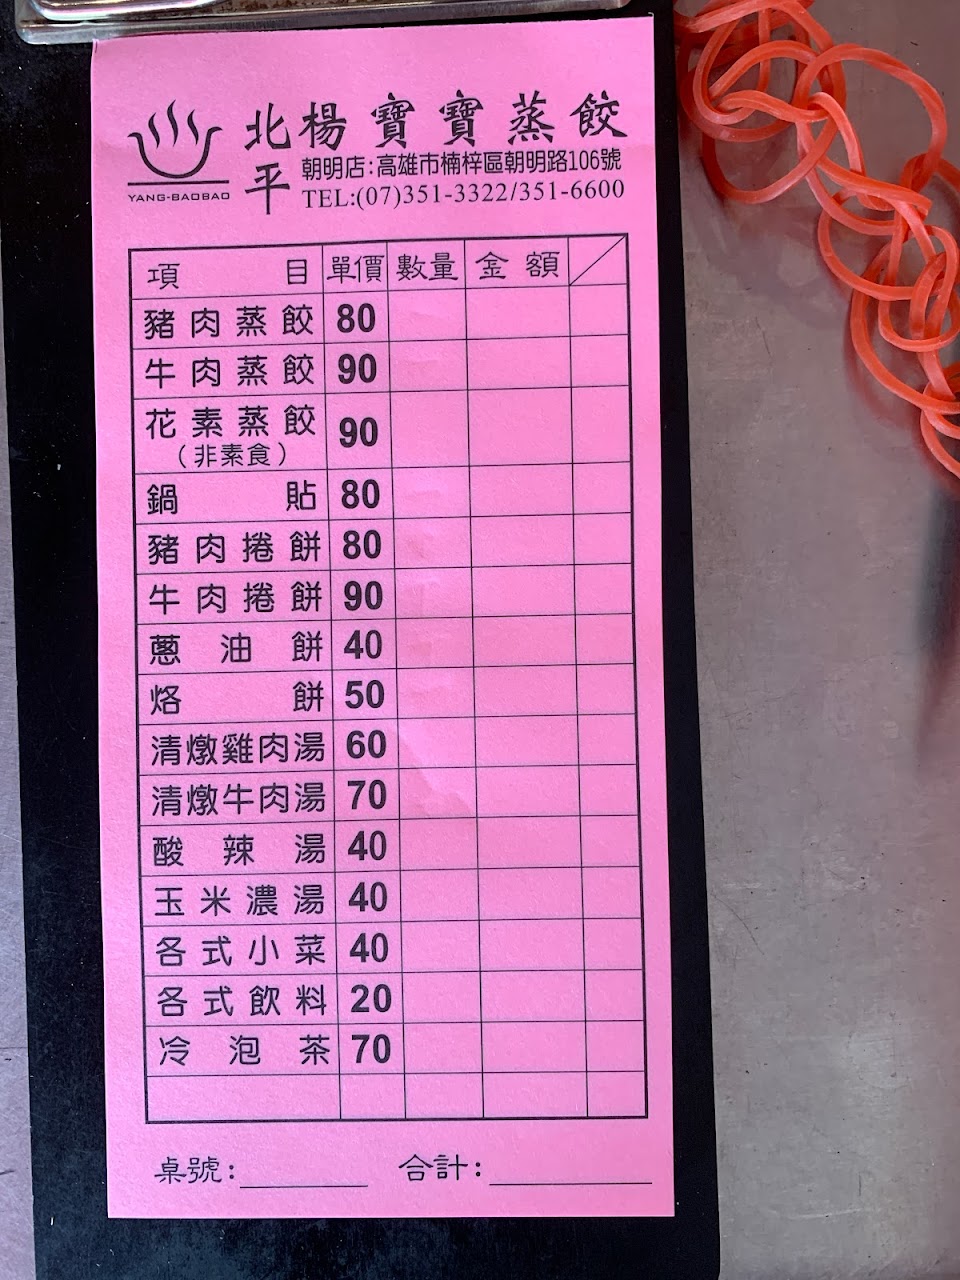 北平楊寶寶蒸餃
YANG-BAOBAO
朝明店:高雄市楠梓區朝明路106號
TEL:(07)351-3322/351-6600
項目 單價 數量 金額
豬肉蒸餃 80
牛肉蒸餃 90
花素蒸餃 90
(非素食)
鍋貼 80
豬肉捲餅 80
牛肉捲餅 90
蔥油餅 40
烙餅 50
清燉雞肉湯 60
清燉牛肉湯 70
酸辣湯 40
玉米濃湯 40
各式小菜 40
各式飲料 20
冷泡茶 70
桌號: 合計: